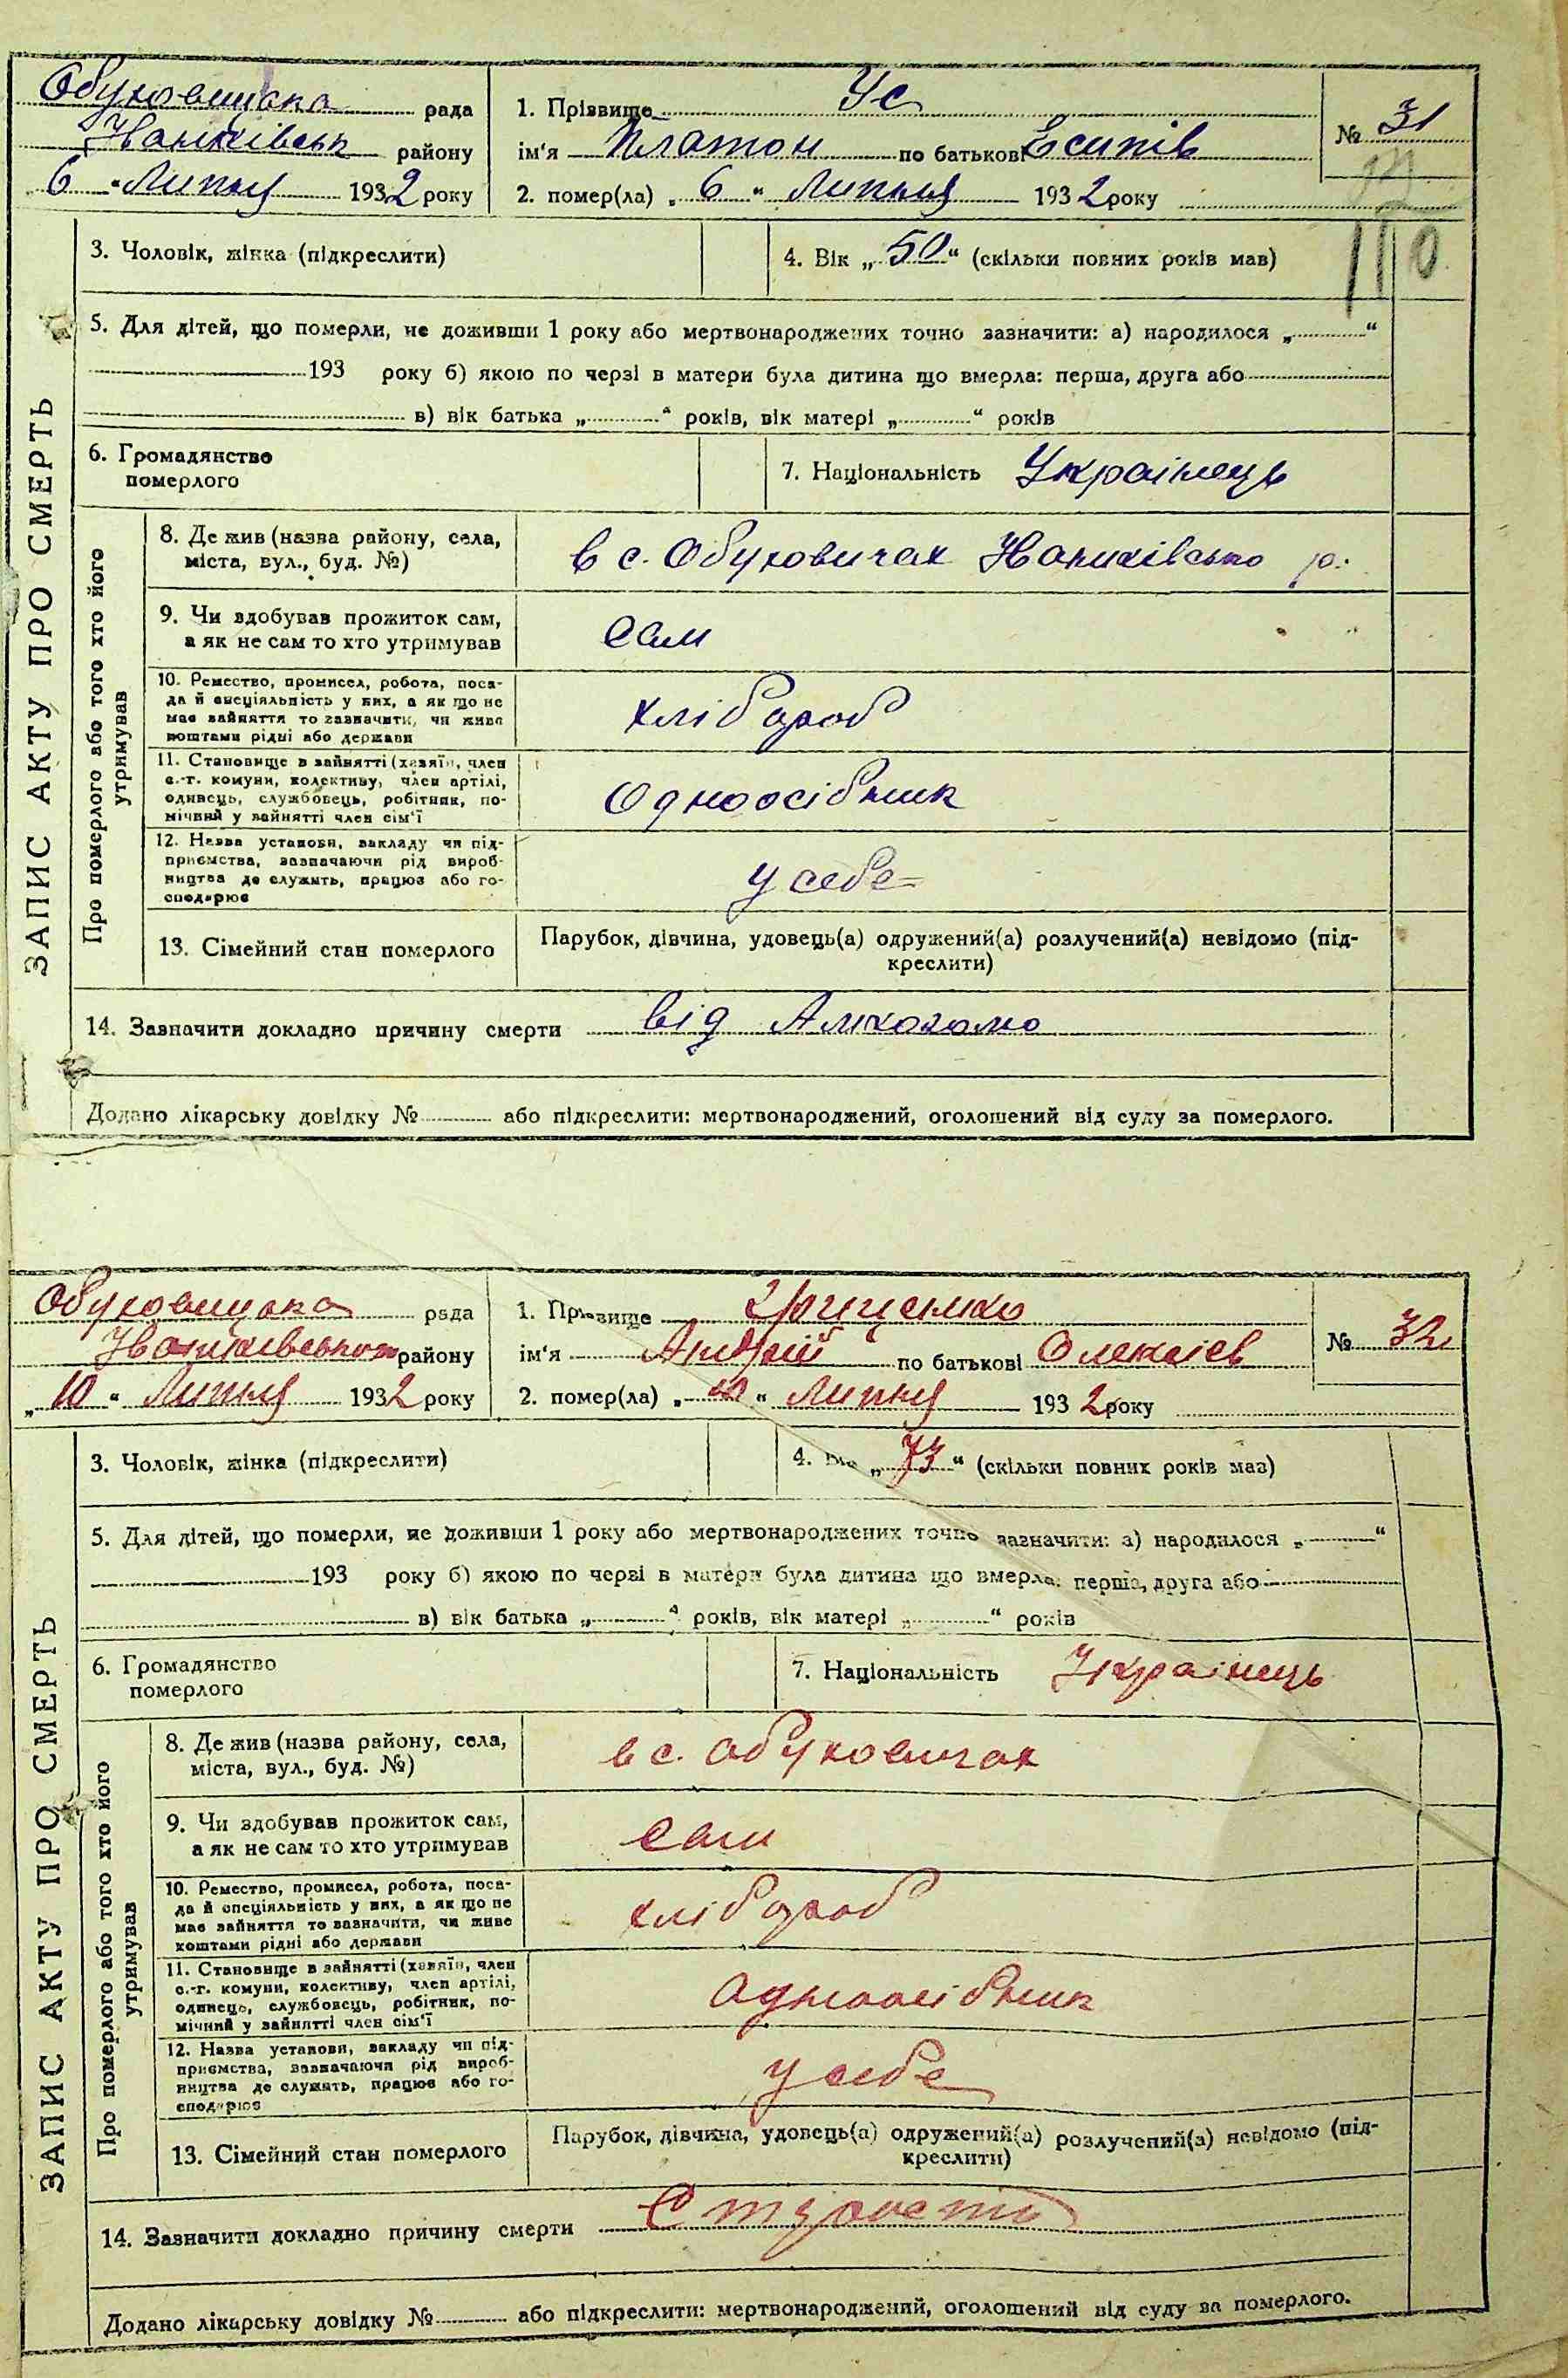 Обуховицька рада
Іванківськ району
„ 6 “ Липня 1932 року
1. Прізвище Ус
ім'я Платон по батькові Єсипів
2. помер(ла) „ 6 “ Липня 1932 року
№ 31
110
ЗАПИС АКТУ ПРО СМЕРТЬ
3. Чоловік, жінка (підкреслити)
4. Вік „ 50 “ (скільки повних років мав)
5. Для дітей, що померли, не доживши 1 року або мертвонароджених точно зазначити: а) народилося „ “
193 року б) якою по черзі в матери була дитина що вмерла: перша, друга або
в) вік батька „ “ років, вік матері „ “ років
6. Громадянство
померлого
7. Національність Українець
Про померлого або того хто його
утримував
8. Де жив (назва району, села,
міста, вул., буд. №)
в с. Обуховичах Іванківсько р.
9. Чи здобував прожиток сам,
а як не сам то хто утримував
сам
10. Ремество, промисел, робота, поса-
да й спеціяльність у них, а як що не
має зайняття то зазначити, чи живе
коштами рідні або держави
хлібороб
11. Становище в зайнятті (хазяїн, член
с.-г. комуни, колективу, член артілі,
одинець, службовець, робітник, по-
мічний у зайнятті член сім'ї
Одноосібник
12. Назва установи, закладу чи під-
приємства, зазначаючи рід вироб-
ництва де служить, працює або го-
сподарює
у себе
13. Сімейний стан померлого
Парубок, дівчина, удовець(а) одружений(а) розлучений(а) невідомо (під-
креслити)
14. Зазначити докладно причину смерти від Алкоголю
Додано лікарську довідку № або підкреслити: мертвонароджений, оголошений від суду за померлого.
Обуховицька рада
Іванківського району
„ 10 “ Липня 1932 року
1. Прізвище Грищенко
ім'я Андрій по батькові Олексієв
2. помер(ла) „ 10 “ Липня 1932 року
№ 32
ЗАПИС АКТУ ПРО СМЕРТЬ
3. Чоловік, жінка (підкреслити)
4. Вік „ 73 “ (скільки повних років маз)
5. Для дітей, що померли, не доживши 1 року або мертвонароджених точно зазначити: а) народилося „ “
193 року б) якою по черзі в матери була дитина що вмерла: перша, друга або
в) вік батька „ “ років, вік матері „ “ років
6. Громадянство
померлого
7. Національність Українець
Про померлого або того хто його
утримував
8. Де жив (назва району, села,
міста, вул., буд. №)
в с. Обуховичах
9. Чи здобував прожиток сам,
а як не сам то хто утримував
сам
10. Ремество, промисел, робота, поса-
да й спеціяльність у них, а як що не
має зайняття то зазначити, чи живе
коштами рідні або держави
хлібороб
11. Становище в зайнятті (хазяїн, член
с.-г. комуни, колективу, член артілі,
одинець, службовець, робітник, по-
мічний у зайнятті член сім'ї
Одноосібник
12. Назва установи, закладу чи під-
приємства, зазначаючи рід вироб-
ництва де служить, працює або го-
сподарює
у себе
13. Сімейний стан померлого
Парубок, дівчина, удовець(а) одружений(а) розлучений(а) невідомо (під-
креслити)
14. Зазначити докладно причину смерти Старость
Додано лікарську довідку № або підкреслити: мертвонароджений, оголошений від суду за померлого.